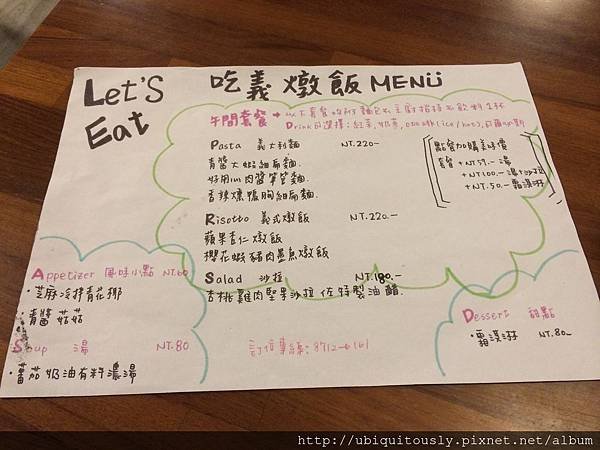 Let's Eat
吃義燉飯 MENU
午間套餐 → 以下套餐均附麵包&主廚招待&飲料1杯
Drink可選擇:紅茶,奶茶,(ice/hot),
Pasta 義大利麵 NT.220-
青醬大蝦細扁麵.
好用心肉醬筆管麵.
香辣燻鴨胸細扁麵.
Risotto 義式燉飯 NT.220.-
蘋果杏仁燉飯
櫻花蝦豬肉墨魚燉飯
Salad 沙拉 NT.180.-
杏桃雞肉堅果沙拉佐特製油醋.
點餐加購美好價
套餐 +NT.59.- 湯
+NT.100.- 湯+沙拉
+NT.50.- 霜淇淋
Appetizer 風味小點 NT.60
·芝麻涼拌青花椰
·青醬菇菇
Soup 湯 NT.80
·蕃茄奶油有料濃湯
訂位專線:8712-6161
Dessert 甜點
·霜淇淋 NT.80-
http://ubiquitously.pixnet.net/album